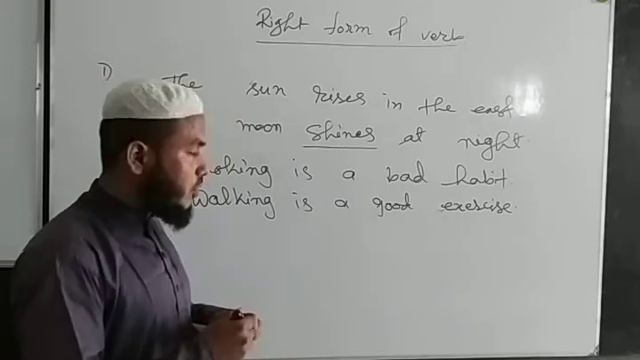 Right form of verb
1) The sun rises in the east
moon shines at night.
is a bad habit
Walking is a good exercise.